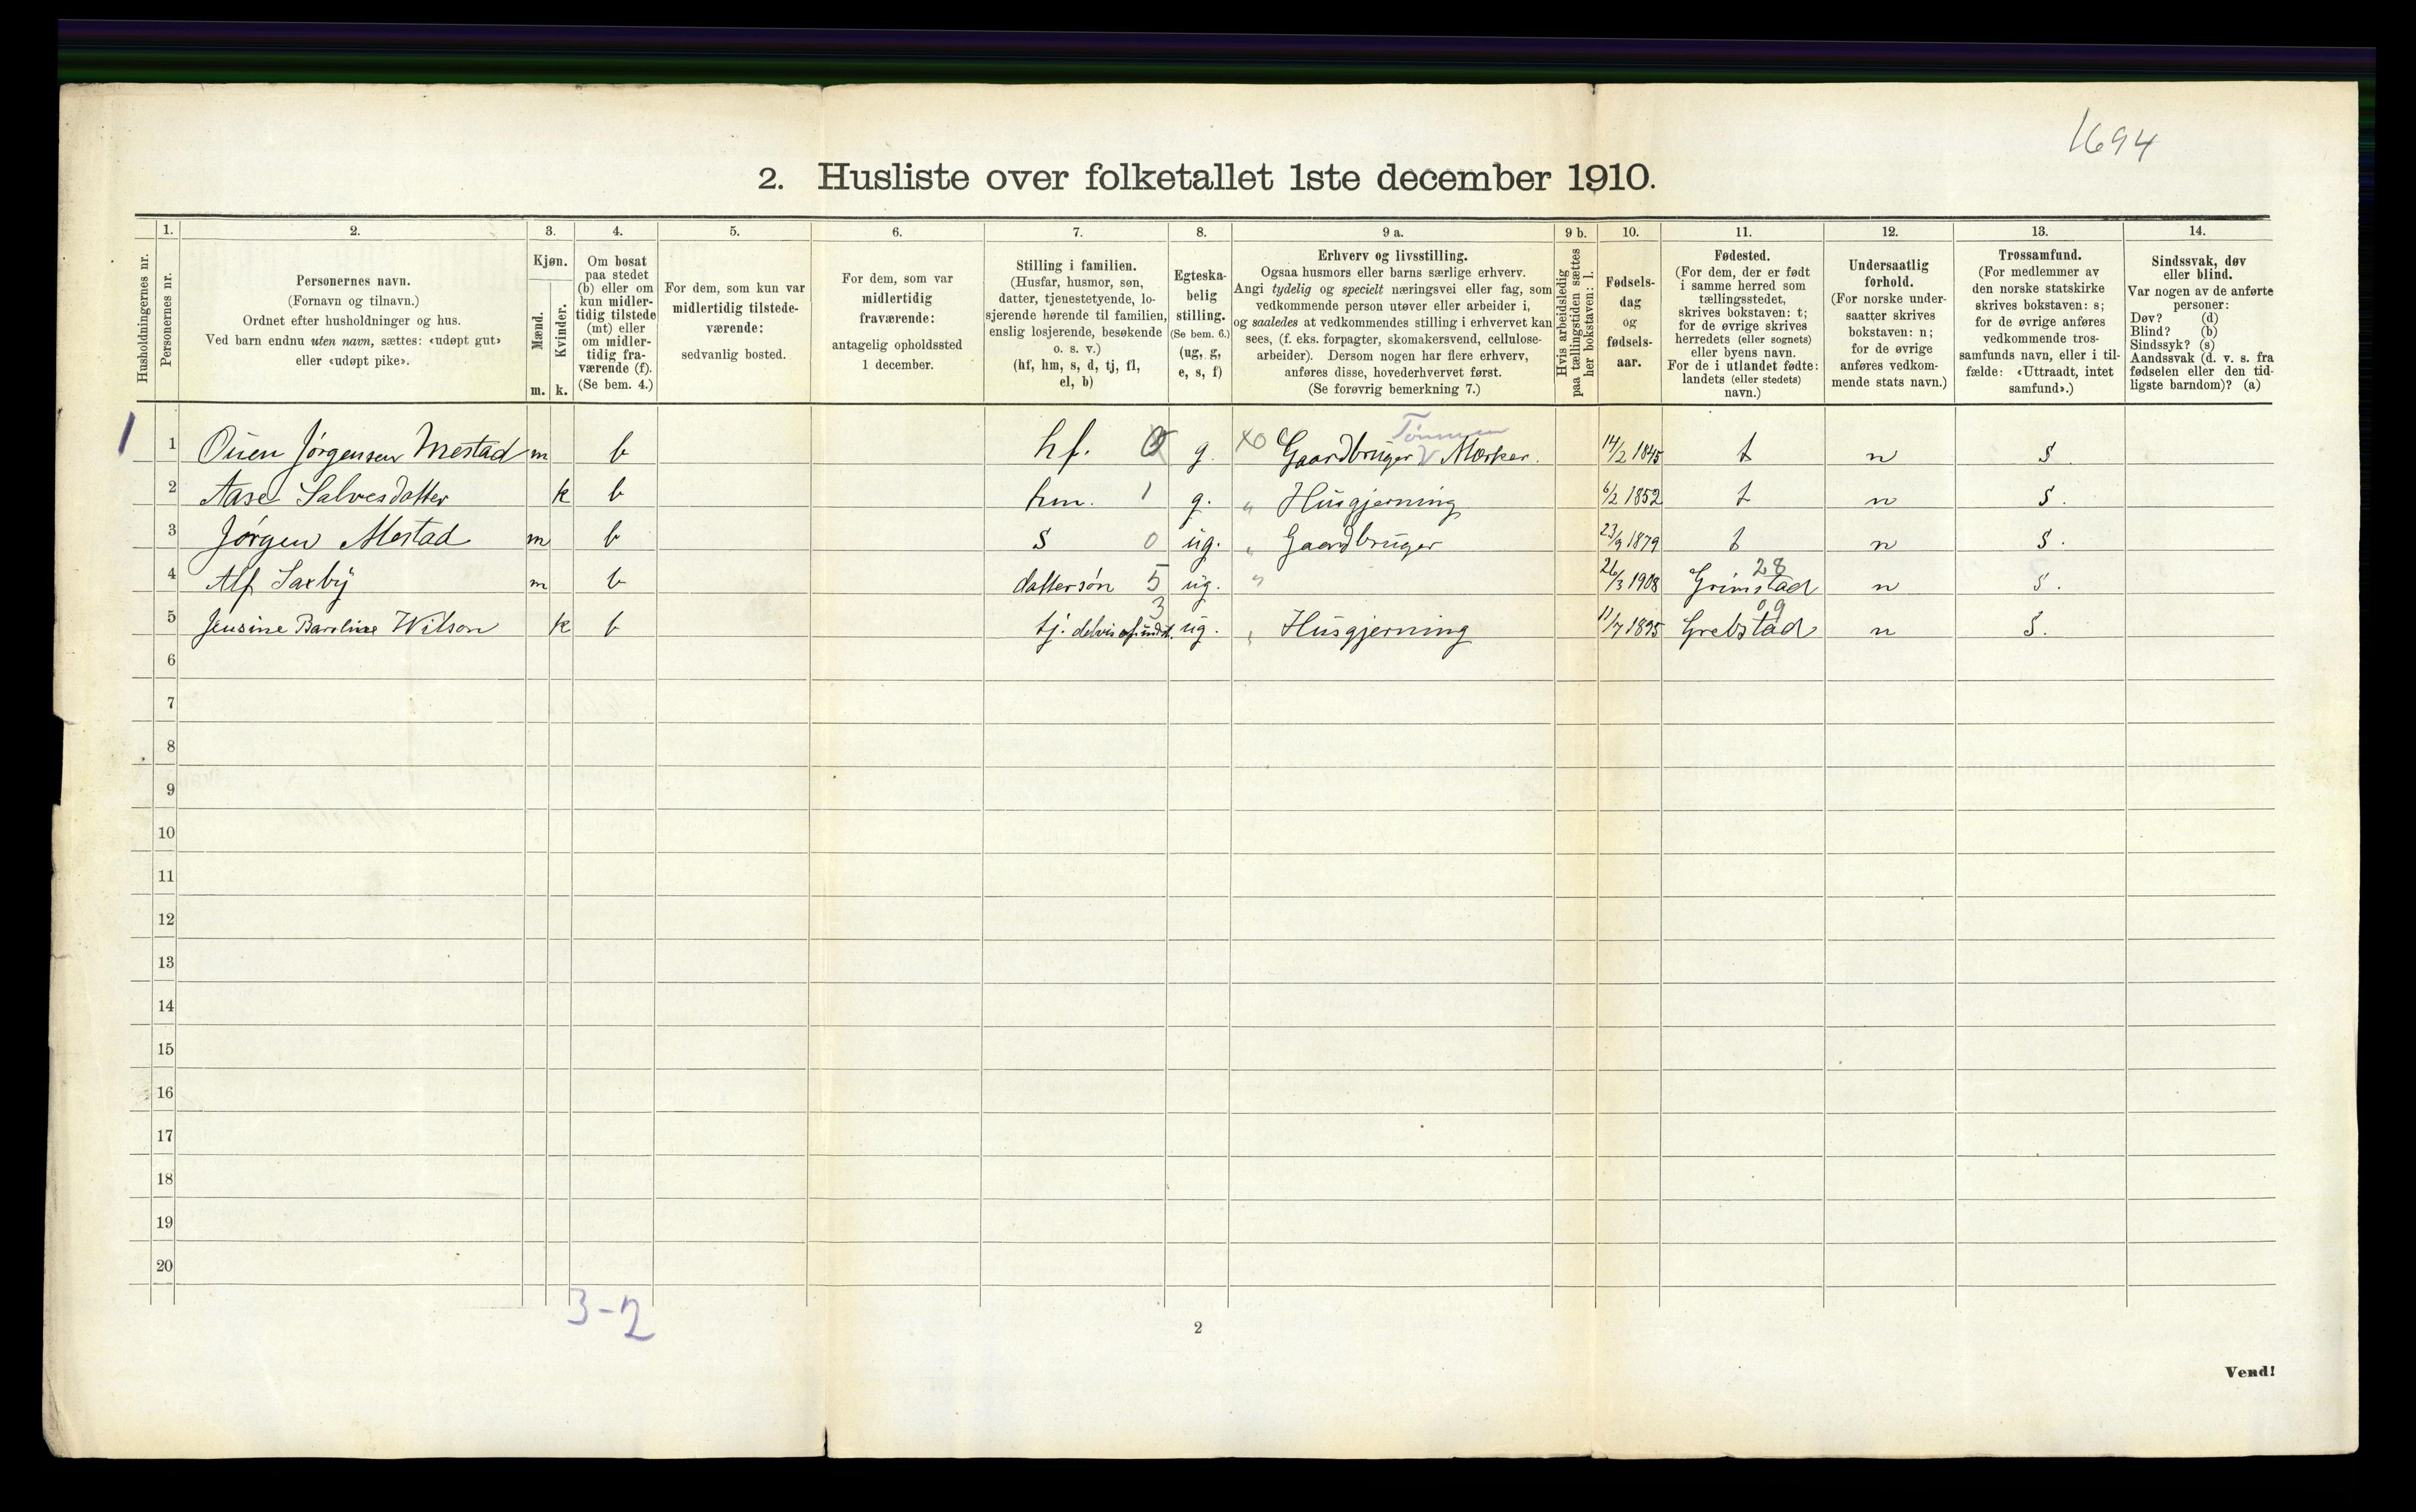 1694
2. Husliste over folketallet 1ste december 1910.
Husholdningernes nr.
1.
Personernes nr.
2.
Personernes navn.
(Fornavn og tilnavn.)
Ordnet efter husholdninger og hus.
Ved barn endnu uten navn, sættes: «udøpt gut»
eller «udøpt pike».
3.
Kjøn.
Mænd.
Kvinder.
m. k.
4.
Om bosat
paa stedet
(b) eller om
kun midler-
tidig tilstede
(mt) eller
om midler-
tidig fra-
værende (f).
(Se bem. 4.)
5.
For dem, som kun var
midlertidig tilstede-
værende:
sedvanlig bosted.
6.
For dem, som var
midlertidig
fraværende:
antagelig opholdssted
1 december.
7.
Stilling i familien.
(Husfar, husmor, søn,
datter, tjenestetyende, lo-
sjerende hørende til familien,
enslig losjerende, besøkende
o. s. v.)
(hf, hm, s, d, tj, fl,
el, b)
8.
Egteska-
belig
stilling.
(Se bem. 6.)
(ug, g,
e, s, f)
9 a.
Erhverv og livsstilling.
Ogsaa husmors eller barns særlige erhverv.
Angi tydelig og specielt næringsvei eller fag, som
vedkommende person utøver eller arbeider i,
og saaledes at vedkommendes stilling i erhvervet kan
sees, (f. eks. forpagter, skomakersvend, cellulose-
arbeider). Dersom nogen har flere erhverv,
anføres disse, hovederhvervet først.
(Se forøvrig bemerkning 7.)
9 b.
Hvis arbeidsledig
paa tællingstiden sættes
her bokstaven: l.
10.
Fødsels-
dag
og
fødsels-
aar.
11.
Fødested.
(For dem, der er født
i samme herred som
tællingsstedet,
skrives bokstaven: t;
for de øvrige skrives
herredets (eller sognets)
eller byens navn.
For de i utlandet fødte:
landets (eller stedets)
navn.)
12.
Undersaatlig
forhold.
(For norske under-
saatter skrives
bokstaven: n;
for de øvrige
anføres vedkom-
mende stats navn.)
13.
Trossamfund.
(For medlemmer av
den norske statskirke
skrives bokstaven: s;
for de øvrige anføres
vedkommende tros-
samfunds navn, eller i til-
fælde: «Uttraadt, intet
samfund».)
14.
Sindssvak, døv
eller blind.
Var nogen av de anførte
personer:
Døv? (d)
Blind? (b)
Sindssyk? (s)
Aandssvak (d. v. s. fra
fødselen eller den tid-
ligste barndom)? (a)
1 1 Ouen Jørgensen Mestad m b hf. g. X0 Gaardbruger V Mærker. 14/2 1845 t n s
2 Aase Salvesdatter k b hm. 1 g. " Husgjerning 6/2 1852 t n s.
3 Jørgen Mestad m b s 0 ug. " Gaardbruger 23/9 1879 t n s.
28
4 Alf Saxby m b dattersøn 5 ug. " 26/3 1908 Grimstad n s.
3 09
5 Jensine Baroline Wilson k b tj. delvis ug. " Husgjerning 11/7 1895 Grebstad n s.
6
7
8
9
10
11
12
13
14
15
16
17
18
19
20
3-2
2
Vend!